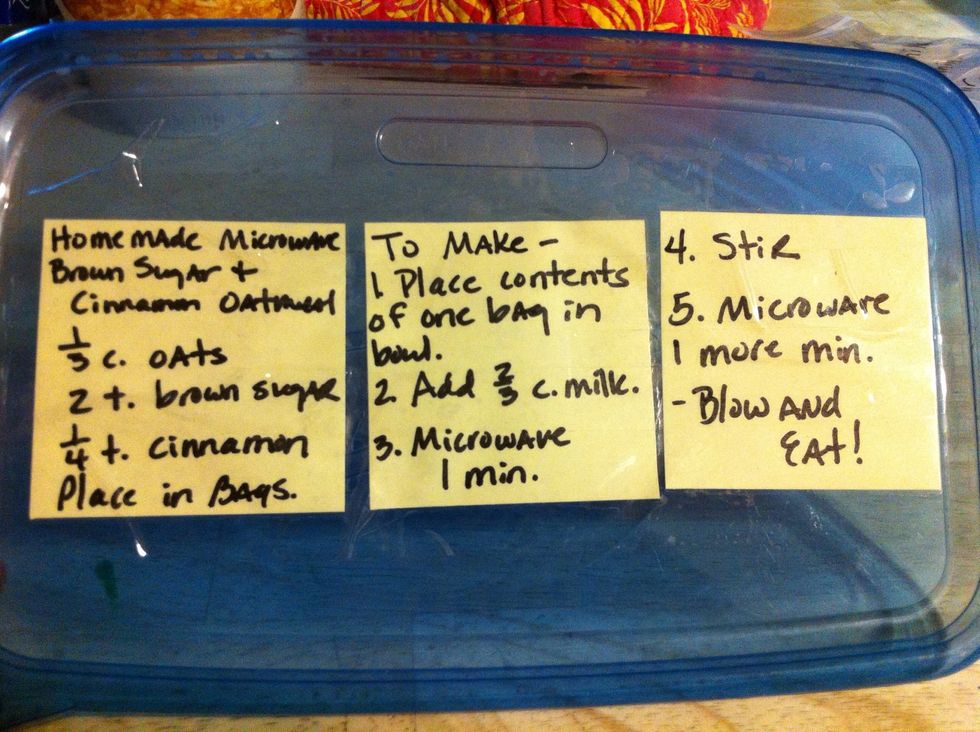 Homemade Microwave
Brown Sugar +
Cinnamon Oatmeal
1/3 c. oats
2 t. brown sugar
1/4 t. cinnamon
Place in Bags.
To Make -
1 Place contents
of one bag in
bowl.
2. Add 2/3 c. milk.
3. Microwave
1 min.
4. Stir
5. Microwave
1 more min.
- Blow and
Eat!